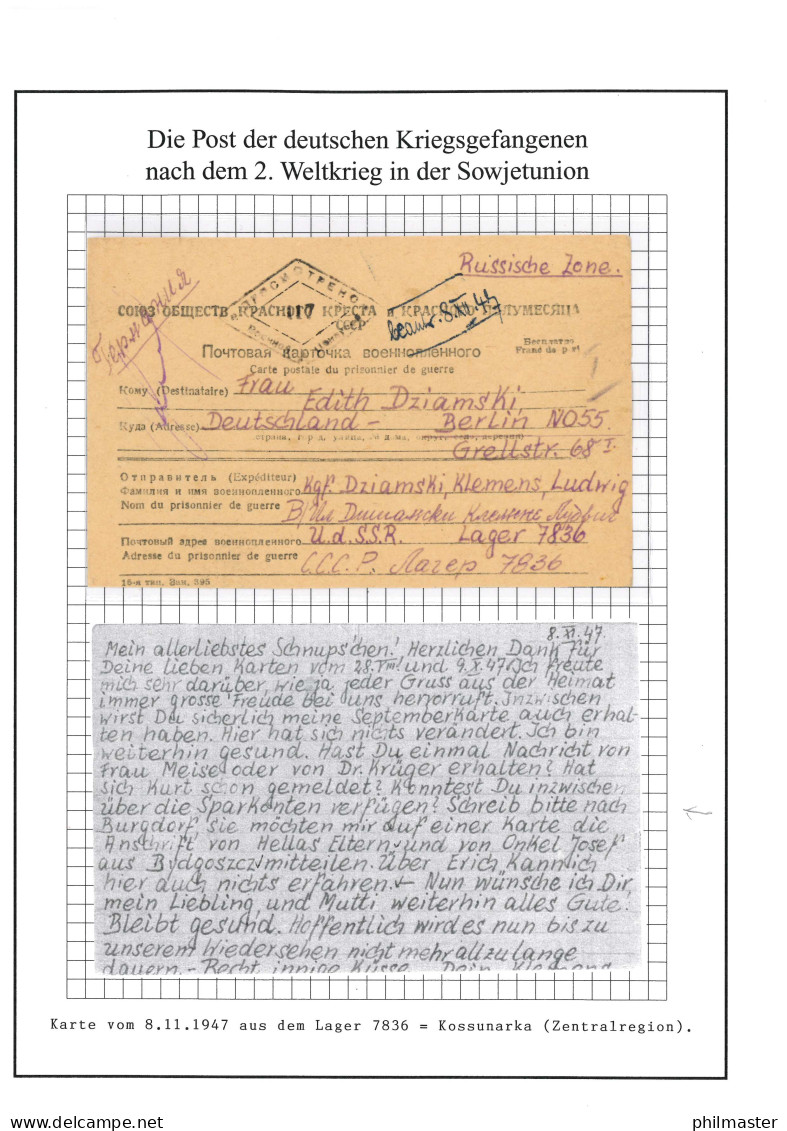 Die Post der deutschen Kriegsgefangenen
nach dem 2. Weltkrieg in der Sowjetunion
Russische Zone.
Германия
ПРОСМОТРЕНО
017
beantw. 8.XII.47
СОЮЗ ОБЩЕСТВ КРАСНОГО КРЕСТА и КРАСНОГО ПОЛУМЕСЯЦА
СССР
Почтовая карточка военнопленного
Carte postale du prisonnier de guerre
Бесплатно
Franc de port
Кому (Destinataire) Frau
Edith Dziamski,
Куда (Adresse) Deutschland - Berlin NO55.
Grellstr. 68 I.
Отправитель (Expéditeur)
Фамилия и имя военнопленного Kgf. Dziamski, Klemens, Ludwig
Nom du prisonnier de guerre
Почтовый адрес военнопленного U.d.S.S.R. Lager 7836
Adresse du prisonnier de guerre С.С.С.Р. Лагер 7836
16-я тип. Зак. 395
8.XI.47.
Mein allerliebstes Schnups'chen! Herzlichen Dank für
Deine lieben Karten vom 28.VIII. und 9.X.47. Ich freute
mich sehr darüber, wie ja jeder Gruss aus der Heimat
immer grosse Freude bei uns hervorruft. Inzwischen
wirst Du sicherlich meine Septemberkarte auch erhal-
ten haben. Hier hat sich nichts verändert. Ich bin
weiterhin gesund. Hast Du einmal Nachricht von
Frau Meise oder von Dr. Krüger erhalten? Hat
sich Kurt schon gemeldet? Konntest Du inzwischen
über die Sparkonten verfügen? Schreib bitte nach
Burgdorf, sie möchten mir auf einer Karte die
Anschrift von Hellas Eltern und von Onkel Josef
aus Bydgoszcz mitteilen. Über Erich kann ich
hier auch nichts erfahren. - Nun wünsche ich Dir,
mein Liebling und Mutti weiterhin alles Gute!
Bleibt gesund. Hoffentlich wird es nun bis zu
unserem Wiedersehen nicht mehr allzulange
dauern. - Recht innige Küsse Dein Klemens
Karte vom 8.11.1947 aus dem Lager 7836 = Kossunarka (Zentralregion).
philmaster